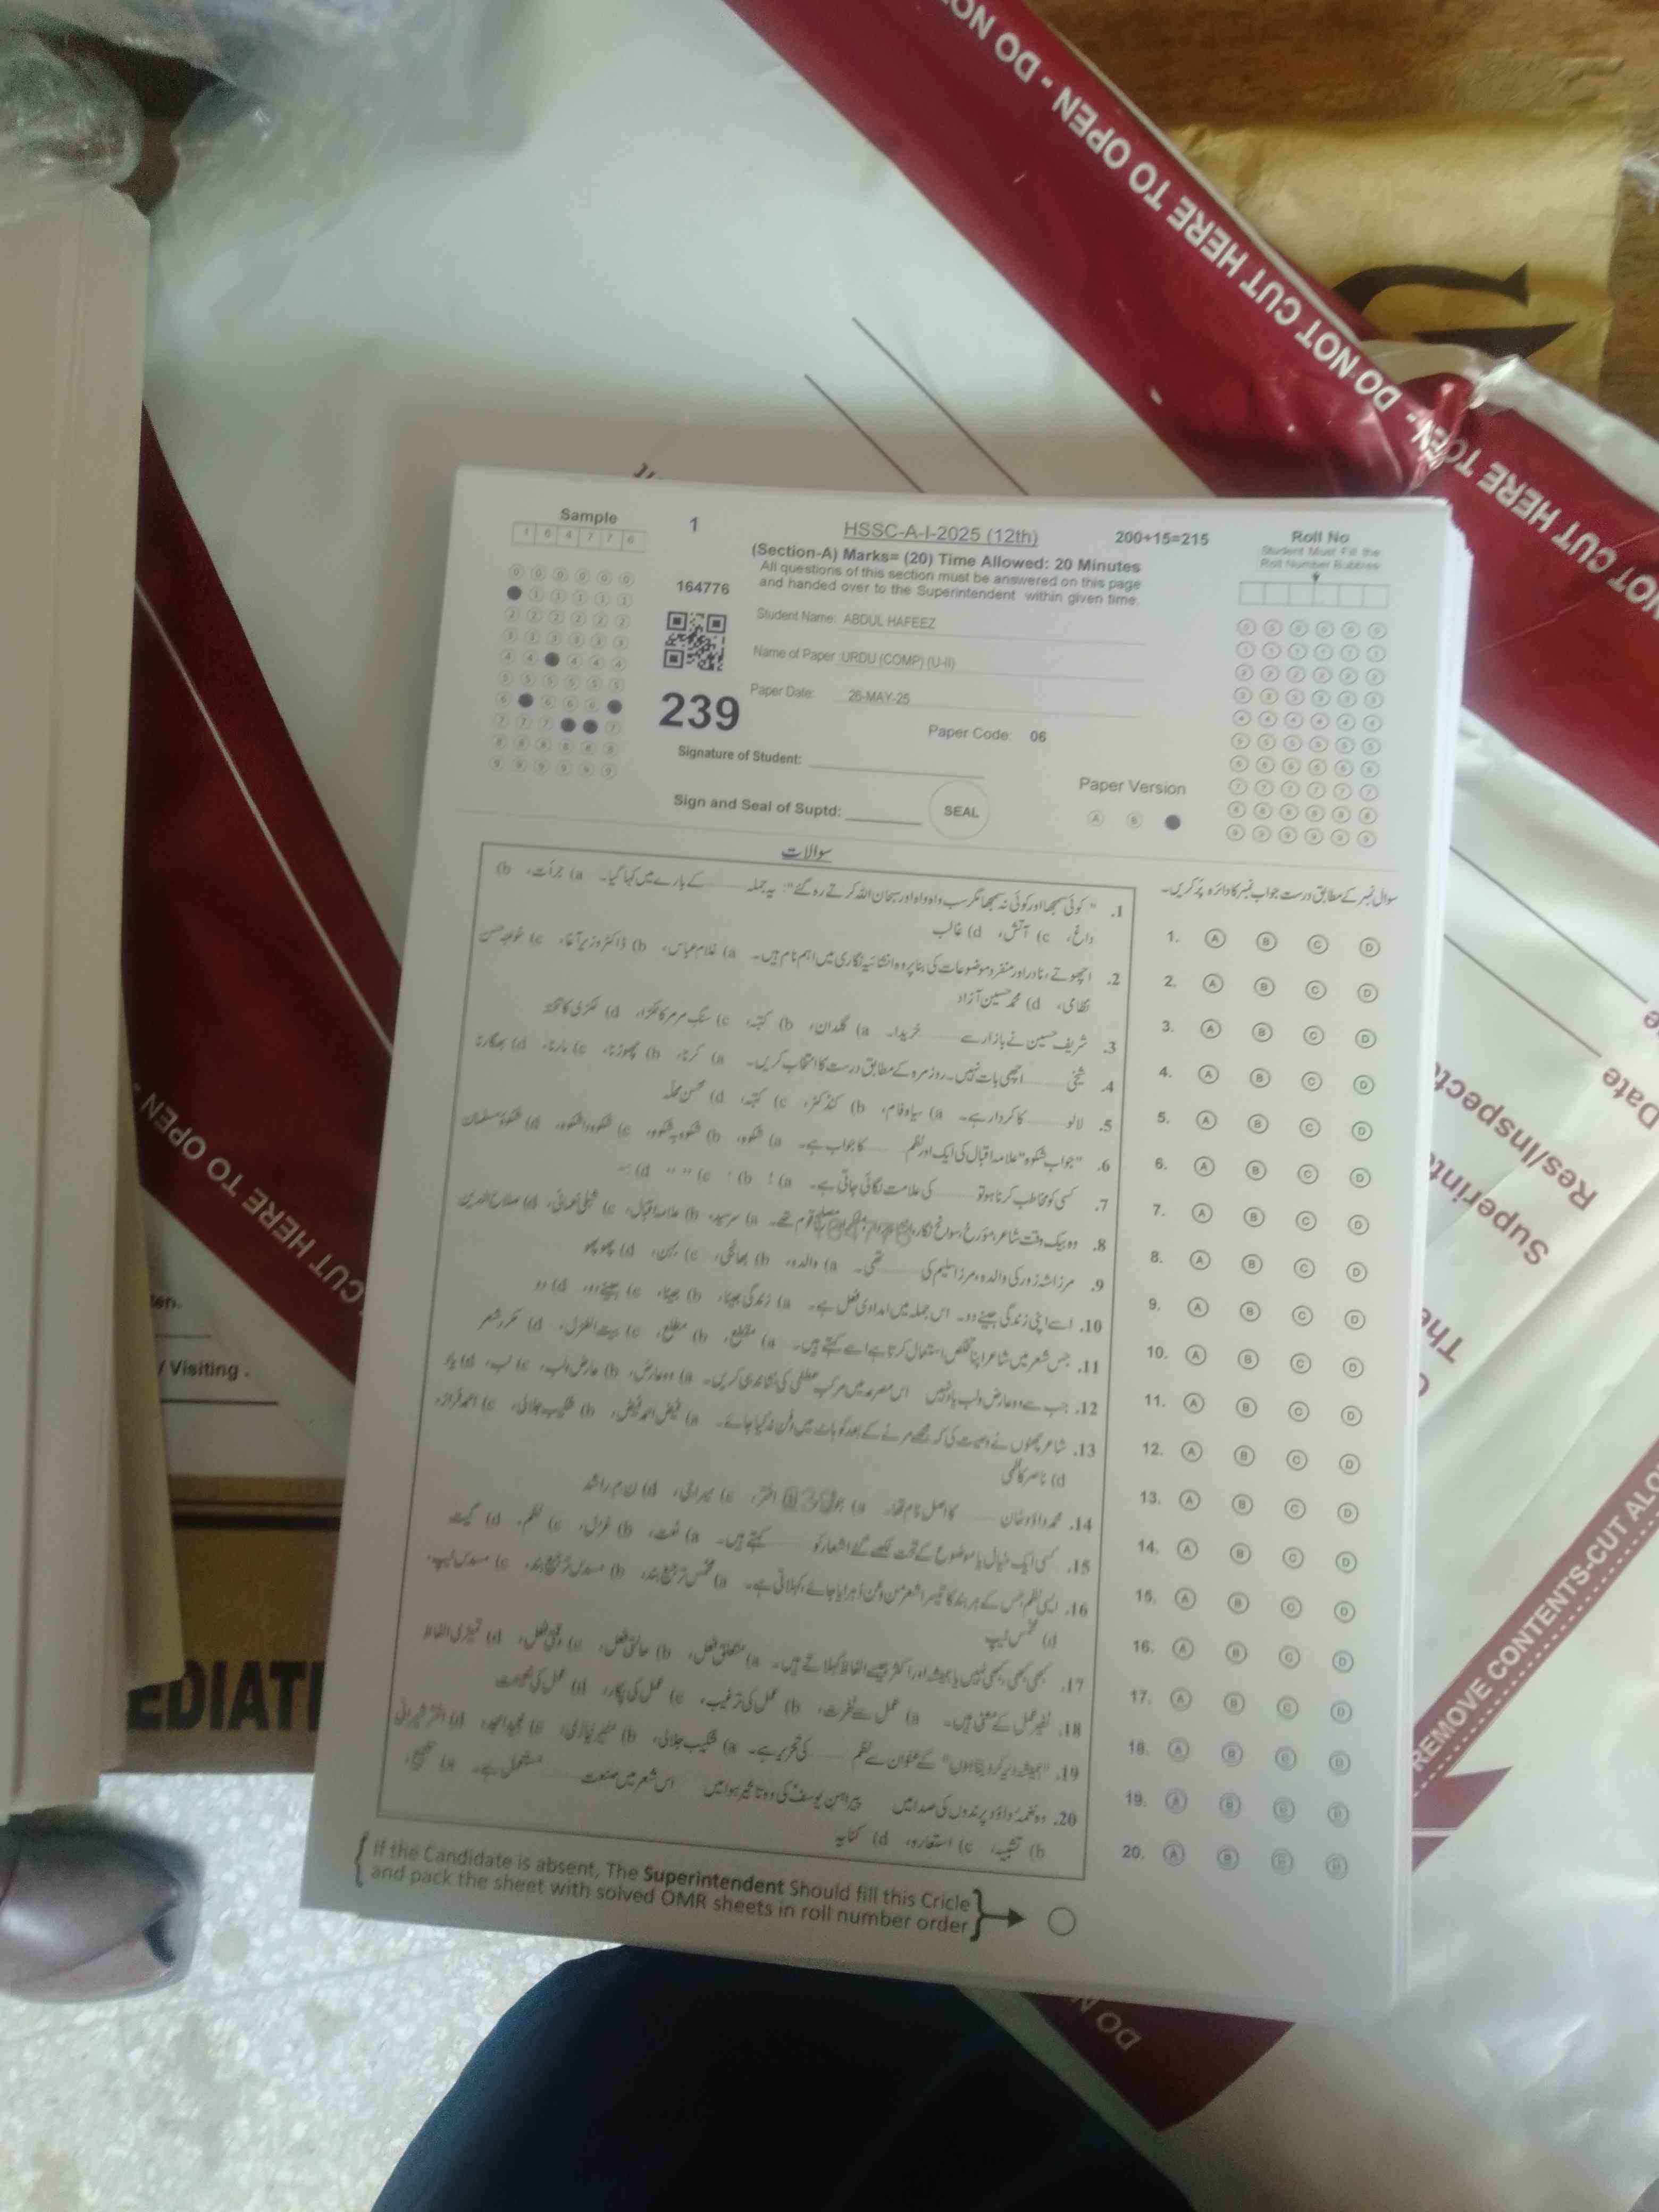 DO NOT CUT HERE TO OPEN - DO NOT CUT HERE TO OPEN - DO NO
Sample
1 6 4 7 7 6
1
HSSC-A-I-2025 (12th)
200+15=215
(Section-A) Marks= (20) Time Allowed: 20 Minutes
All questions of this section must be answered on this page
and handed over to the Superintendent within given time.
Roll No
Student Must Fill the
Roll Number Bubbles
164776
Student Name: ABDUL HAFEEZ
Name of Paper URDU (COMP) (U-II)
Paper Date: 26-MAY-25
239
Paper Code: 06
Signature of Student:
Paper Version
A B
Sign and Seal of Suptd:
SEAL
سوالات
سوال نمبر کے مطابق درست جواب نمبر کا دائرہ پُر کریں۔
1. "کوئی سمجھا اور کوئی نہ سمجھا مگر سب واہ واہ اور سبحان اللہ کرتے رہ گئے": یہ جملہ کے بارے میں کہا گیا۔ a) جرأت، b)
داغ، c) آتش، d) غالب
2. اچھوتے، نادر اور منفرد موضوعات کی بنا پر وہ انشائیہ نگاری میں اہم نام ہیں۔ a) غلام عباس، b) ڈاکٹر وزیر آغا، c) خواجہ حسن
نظامی، d) محمد حسین آزاد
3. شریف حسین نے بازار سے خریدا۔ a) گلدان، b) کتبہ، c) سنگ مرمر کا ٹکڑا، d) لکڑی کا تختہ
4. شیخی اچھی بات نہیں۔ روزمرہ کے مطابق درست کا انتخاب کریں۔ a) کرنا، b) چھوڑنا، c) مارنا، d) بھگارنا
5. لالو کا کردار ہے۔ a) سیاہ فام، b) کنڈکٹر، c) کتبہ، d) محسن محلہ
6. "جواب شکوہ" علامہ اقبال کی ایک اور نظم کا جواب ہے۔ a) شکوہ، b) شکوہ بہ شکوہ، c) شکوہ در شکوہ، d) شکوۂ مسلمان
7. کسی کو مخاطب کرنا ہو تو کی علامت لگائی جاتی ہے۔ a) ! b)
8. وہ بیک وقت شاعر، مؤرخ، سوانح نگار، قوم تھے۔ a) سرسید، b) علامہ اقبال، c) شبلی نعمانی، d) صلاح الدین
9. مرزا شہ زور کی والدہ، مرزا سلیم کی تھی۔ a) والدہ، b) بھانجی، c) بہن، d) پھوپھو
10. اسے اپنی زندگی جینے دو۔ اس جملہ میں امدادی فعل ہے۔ a) زندگی جینا، b) جینا، c) جینے دو، d) دو
11. جس شعر میں شاعر اپنا تخلص استعمال کرتا ہے اسے کہتے ہیں۔ a) مقطع، b) مطلع، c) بیت الغزل، d) مکرر شعر
12. جب سے وہ عارض و لب یاد نہیں اس مصرعہ میں مرکب عطفی کی نشاندہی کریں۔ a) وہ عارض، b) عارض و لب، c) لب، d) یاد
13. شاعر جنہوں نے وصیت کی کہ مجھے مرنے کے بعد کوہاٹ میں دفن نہ کیا جائے۔ a) فیض احمد فیض، b) شکیب جلالی، c) احمد فراز،
d) ناصر کاظمی
14. محمد داؤد خان کا اصل نام تھا۔ a) اختر، c) میراجی، d) ن م راشد
15. کسی ایک خیال یا موضوع کے تحت لکھے گئے اشعار کو کہتے ہیں۔ a) نعت، b) غزل، c) نظم، d) گیت
16. ایسی نظم جس کے ہر بند کا تیسرا شعر من و عن دہرایا جائے، کہلاتی ہے۔ a) مخمس ترجیع بند، b) مسدس ترجیع بند، c) مسدس ٹیپ،
d) مخمس ٹیپ
17. کبھی کبھی، کبھی نہیں یا ہمیشہ اور اکثر جیسے الفاظ کہلاتے ہیں۔ a) متعلق فعل، b) حالتی فعل، c) وقتی فعل، d) تمیزی الفاظ
18. نفیر عمل کے معنی ہیں۔ a) عمل سے نفرت، b) عمل کی ترغیب، c) عمل کی پکار، d) عمل کی
19. "ہمیشہ دیر کر دیتا ہوں" کے عنوان سے نظم کی تحریر ہے۔ a) شکیب جلالی، b) منیر نیازی، c) مجید امجد، d) اختر شیرانی
20. وہ نغمۂ داؤد پرندوں کی صدا میں پیراہن یوسفؑ کی وہ تاثیر ہوا میں اس شعر میں صنعت مستعمل ہے۔ a) تلمیح،
b) تشبیہ، c) استعارہ، d) کنایہ
1. A B C D
2. A B C D
3. A B C D
4. A B C D
5. A B C D
6. A B C D
7. A B C D
8. A B C D
9. A B C D
10. A B C D
11. A B C D
12. A B C D
13. A B C D
14. A B C D
15. A B C D
16. A B C D
17. A B C D
18. A B C D
19. A B C D
20. A B C D
If the Candidate is absent, The Superintendent Should fill this Cricle
and pack the sheet with solved OMR sheets in roll number order
CUT HERE TO OPEN
/ Visiting
EDIATE
Date
Res/Inspect
Superint
The
REMOVE CONTENTS-CUT ALO
DO N